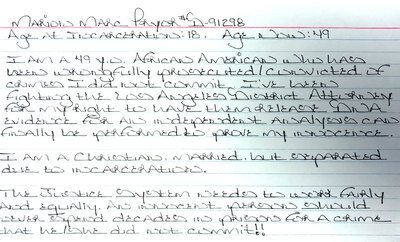 Marion Marc Pryor #D-91298
Age at Incarceration: 18. Age Now: 49
I am a 49 y.o. African American who has
been wrongfully prosecuted/convicted of
crimes I did not commit. I've been
fighting the Los Angeles District Attorney
for my right to have them release DNA
evidence for an independent analyses can
finally be performed to prove my innocence.
I am a Christian. Married, but separated
due to incarceration.
The Justice System needs to work fairly
and equally. An innocent person should
never spend decades in prison for a crime
that he/she did not commit!!